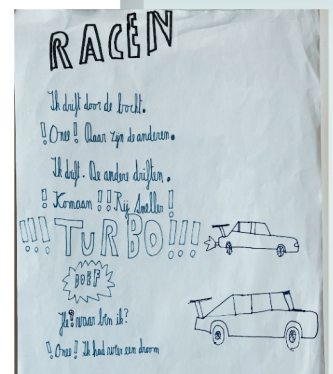 RACEN
Ik drift door de bocht.
! Onee ! Daar zijn de anderen.
Ik drift. De andere driften.
! Komaan !! Rij sneller !
!!! TURBO !!!
BOEF
He? waar ben ik?
! Onee ! Ik had weer een droom